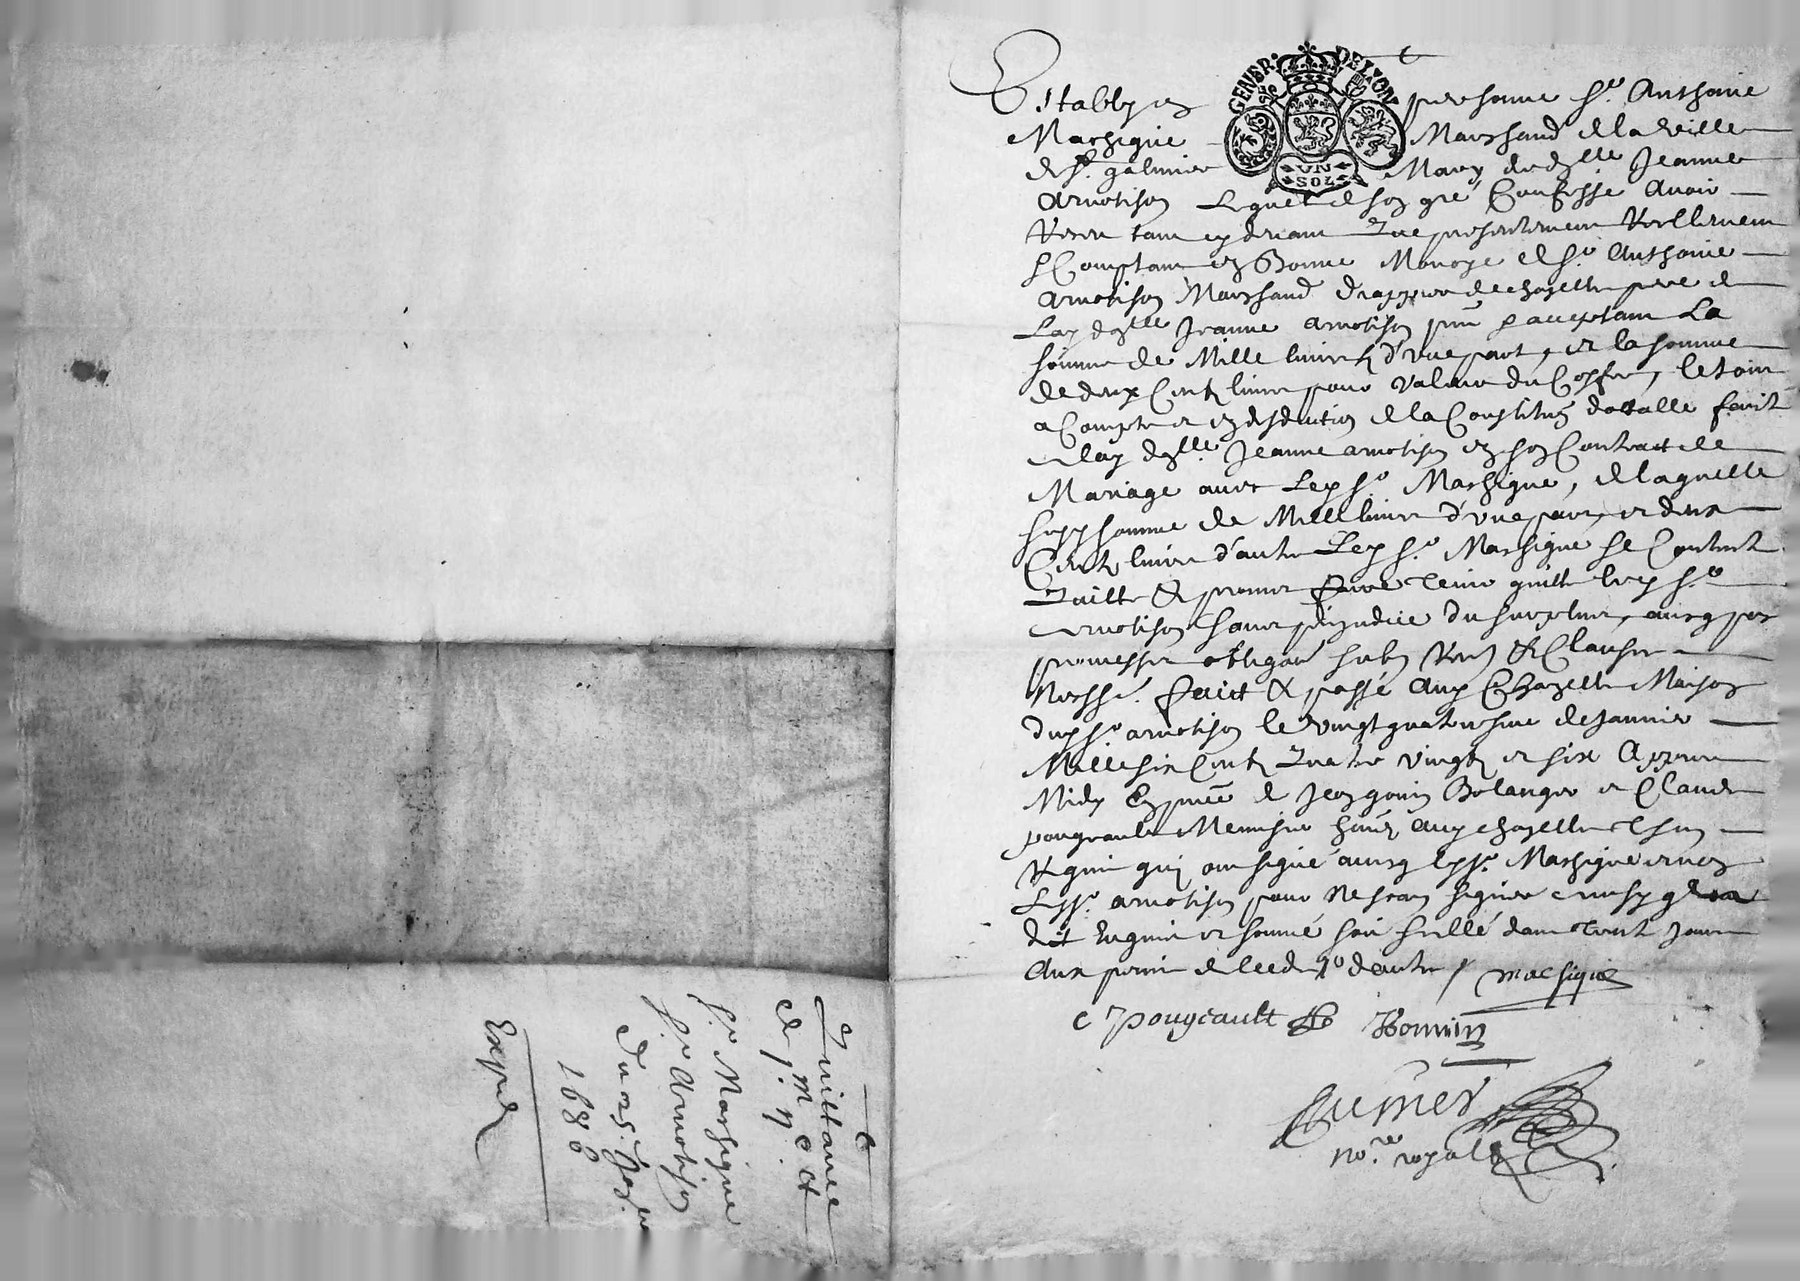 GENER. DE LYON
UN SOL
Estably en personne Sr. Anthoine
Massigue Marchand de la ville
de St. galmier Mary de dlle Jeanne
Arnotison Lequel de son gré Confesse Avoir
Receu tant cy devant que presentement Reellement
& Comptant en Bonne Monoye de Sr Anthoine
Arnotison Marchand drappier de chazelle pere de
Lad dlle Jeanne arnotison pnt & acceptant La
somme de Mille livres d'une part, et la somme
de deux Cents livres pour valeur du Coffre, le tout
a Compte et en deduction de la Constituon dotalle faict
a lad dlle Jeanne arnotison en son Contract de
Mariage avec Led Sr Massigue, de laquelle
susd somme de Mille livres d'une part, et deux
Cents livres d'autre Led Sr. Massigue se Contente
quitte & promet faire tenir quitte led Sr
arnotison sans prejudice du surplus, ainsy par
promesse obligaon soubs Renon & Clauses
Necess. faict & passé Aud Chazelle Maison
dud Sr arnotison le vingt quatriesme de Janvier
Mille six Cents quatre vingts et six Apres
Midy En pnce de Jean gonin Bolanger et Claude
pougeault Menusier habts Aud chazelle tesmoins
Requis qui ont signé avecq led Sr. Massigue et non
Led Sr. arnotison pour ne scavoir signer
dt Enquis et sommé soit scellé dans trente Jours
Aux peines de l'edit
massigue
C Pougeault
Bonnin
no.re royal
Quittance
de 1m 2c lt
pr.
Sr. Massigue
Sr. Arnotison
Du 24. Janer
1686
Exped